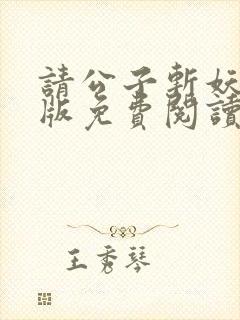 請公子斬妖
版免費閱讀
王秀琴